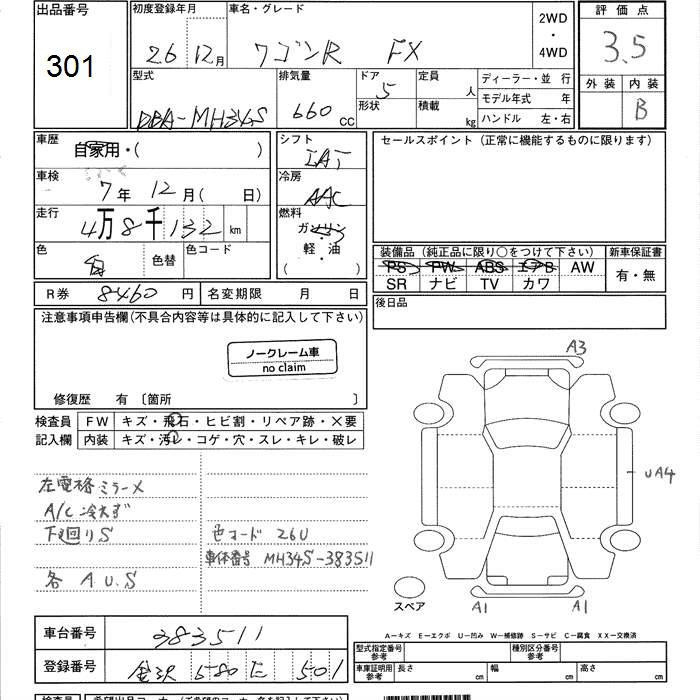 出品番号
301
初度登録年月
26 12月
車名・グレード
ワゴンR FX
2WD
・
4WD
評価点
3.5
外装 内装
B
型式
DBA-MH34S
排気量
660 cc
ドア
5
形状
定員
人
積載
kg
ディーラー・並行
モデル年式 年
ハンドル 左・右
車歴
自家用・( )
シフト
IAT
セールスポイント (正常に機能するものに限ります)
車検
7年 12月( 日)
冷房
AAC
走行
4万8千132 km
燃料
ガソリン
・
軽・油
( )
色
白
色替
色コード
装備品 (純正品に限り○をつけて下さい)
新車保証書
PS PW ABS エアB AW
有・無
SR ナビ TV カワ
R券 8460 円
名変期限 月 日
後日品
注意事項申告欄(不具合内容等は具体的に記入して下さい)
ノークレーム車
no claim
修復歴 有 〔箇所 〕
検査員
記入欄
FW キズ・飛石・ヒビ割・リペア跡・×要
内装 キズ・汚レ・コゲ・穴・スレ・キレ・破レ
左電格ミラー×
A/C冷えず
下廻りS
各 A U.S
色コード 26U
車体番号 MH34S-383511
A3
UA4
A1
A1
スペア
A-キズ E-エクボ U-凹み W-補修跡 S-サビ C-腐食 XX-交換済
車台番号
383511
登録番号
金沢 580 え 501
型式指定番号
参考
種別区分番号
参考
車庫証明用
参考
長さ cm
幅 cm
高さ cm